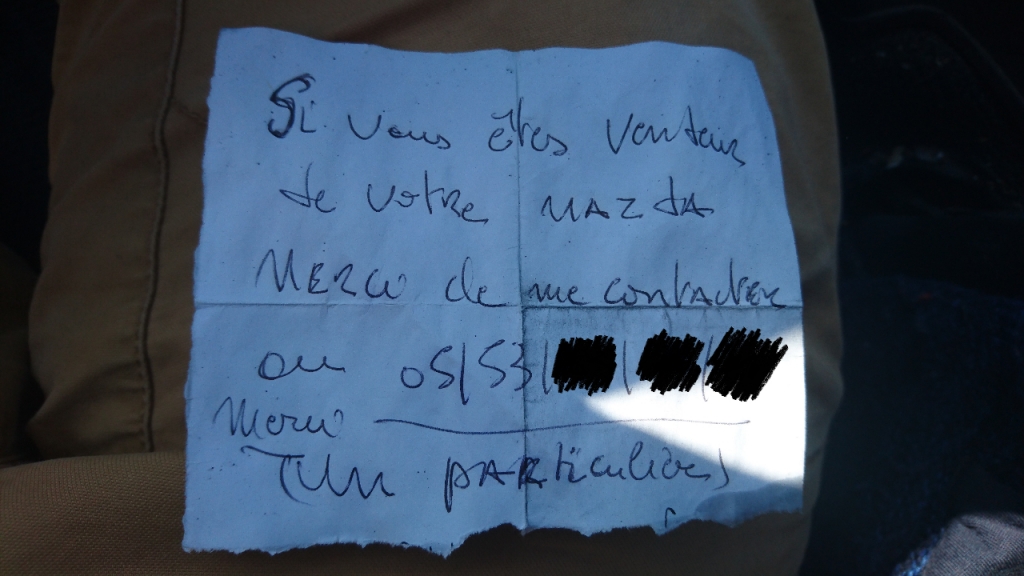 Si vous êtes vendeur
de votre MAZDA
MERCI de me contacter
au 05/53/
Merci
(Un particulier)